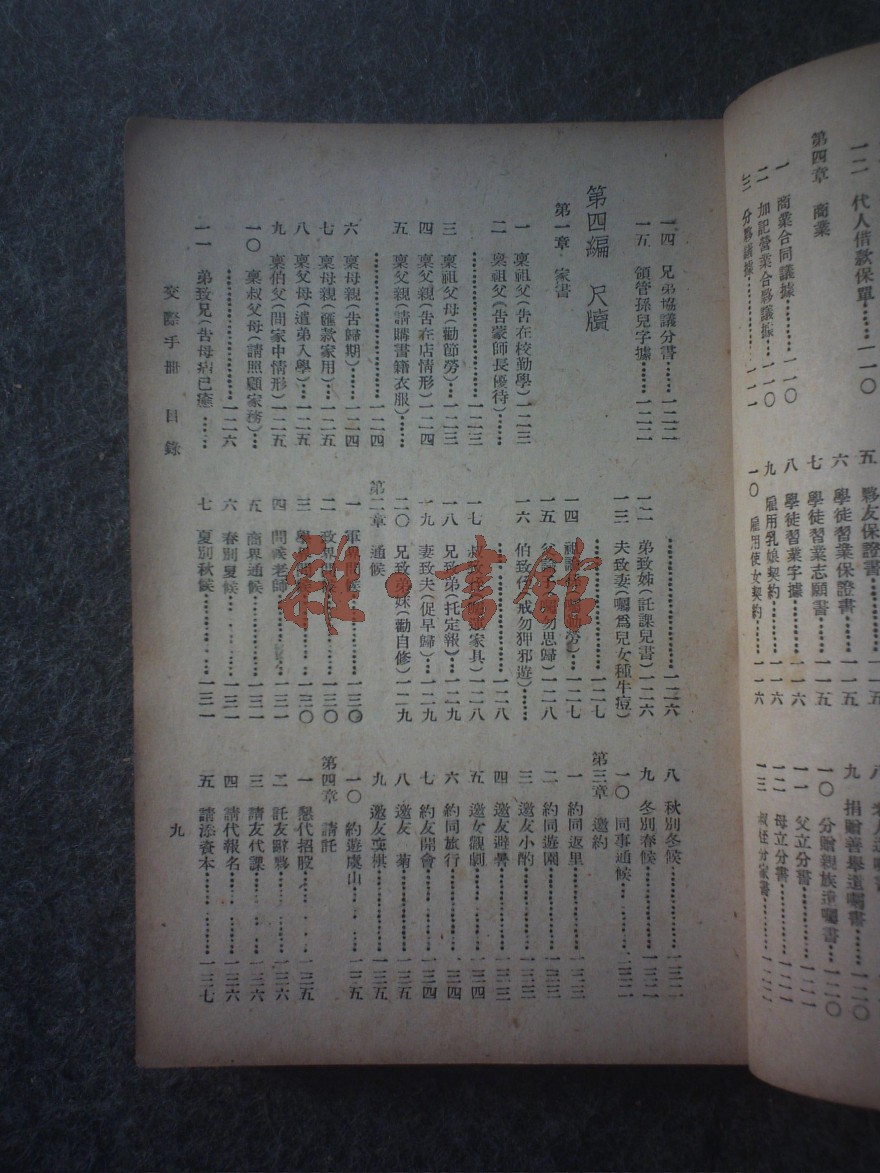 一二 代人借款保單……一一〇
第四章 商業
一 商業合同議據……一一〇
二 加記營業合夥議據…一一〇
三 分夥議據………一一一
五 夥友保證書……一一五
六 學徒習業保證書…一一五
七 學徒習業志願書…一一五
八 學徒習業字據……一一六
九 雇用乳娘契約……一一六
一〇 雇用使女契約…一一六
九 捐贈善舉遺囑書……一二〇
一〇 分贈親族遺囑書…一二〇
一一 父立分書………一二一
一二 母立分書………一二一
一三 叔姪分家書………一二二
一四 兄弟協議分書……一二二
一五 領管孫兒字據……一二二
第四編 尺牘
第一章 家書
一 稟祖父(告在校勤學)一二三
二 稟祖父(告蒙師長優待)
………………一二三
三 稟祖父母(勸節勞)…一二三
四 稟父親(告在店情形)一二四
五 稟父親(請購書籍衣服)……
………………一二四
六 稟母親(告歸期)……一二四
七 稟母親(匯款家用)…一二五
八 稟父母(遣弟入學)…一二五
九 稟伯父(問家中情形)一二五
一〇 稟叔父母(請照顧家務)…
………………一二六
一一 弟致兄(告母病已癒)……
………………一二六
一二 弟致姊(託課兒書)一二六
一三 夫致妻(囑爲兒女種牛痘)
………………一二七
一四 祖諭 勞)…一二七
一五 父 勿思歸)…一二八
一六 伯致 戒勿狎邪遊)
………………一二八
一七 叔致 家具)一二八
一八 兄致弟(托定報)…一二九
一九 妻致夫(促早歸)…一二九
二〇 兄致弟妹(勸自修)一二九
第二章 通候
一 軍界問候…………一三〇
二 政界問候…………一三〇
三 學界問候…………一三〇
四 問義老師…………一三一
五 商界通候…………一三一
六 春別夏候…………一三一
七 夏別秋候…………一三一
八 秋別冬候…………一三二
九 冬別春候…………一三二
一〇 同事通候………一三二
第三章 邀約
一 約同返里…………一三三
二 約同遊園…………一三三
三 邀友小酌…………一三三
四 邀友避暑…………一三三
五 邀友觀劇…………一三四
六 約同旅行…………一三四
七 約友開會…………一三四
八 邀友 菊…………一三五
九 邀友奕棋…………一三五
一〇 約遊虞山………一三五
第四章 請託
一 懇代招股…………一三五
二 託友辭夥…………一三六
三 請友代課…………一三六
四 請代報名…………一三六
五 請添資本…………一三七
交際手册 目錄
九
雜·書館